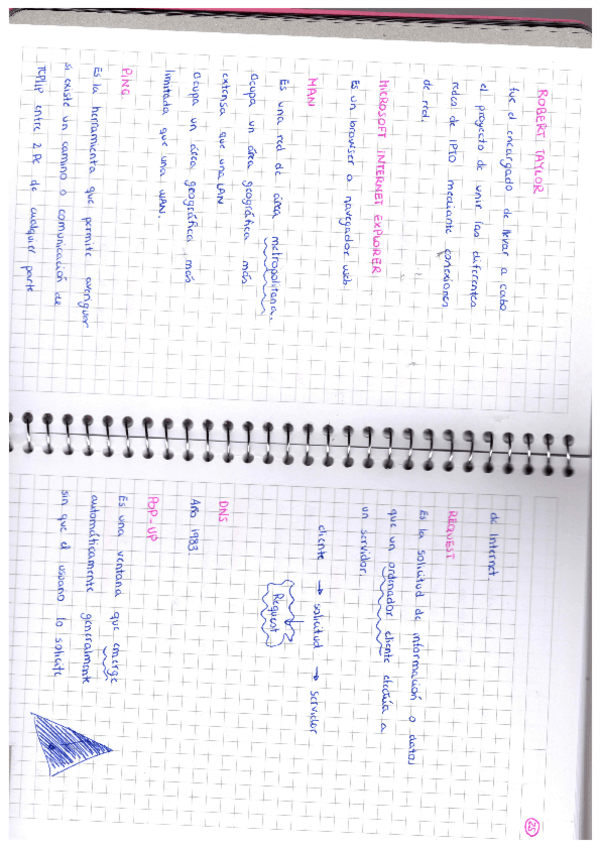 ROBERT TAYLOR
fue el encargado de llevar a cabo
el proyecto de unir las diferentes
redes de IPTO mediante conexiones
de red.
MICROSOFT INTERNET EXPLORER
Es un browser o navegador web.
MAN
Es una red de área metropolitana.
Ocupa un área geográfica más
extensa que una LAN
Ocupa un área geográfica más
limitada que una WAN.
PING
Es la herramienta que permite averiguar
si existe un camino o comunicación de
TCP/IP entre 2 PC de cualquier parte
de Internet.
REQUEST
Es la solicitud de información o datos
que un ordenador cliente efectúa a
un servidor.
cliente → solicitud → servidor
Request
DNS
Año 1983.
POP-UP
Es una ventana que emerge
automáticamente generalmente
sin que el usuario lo solicite
25